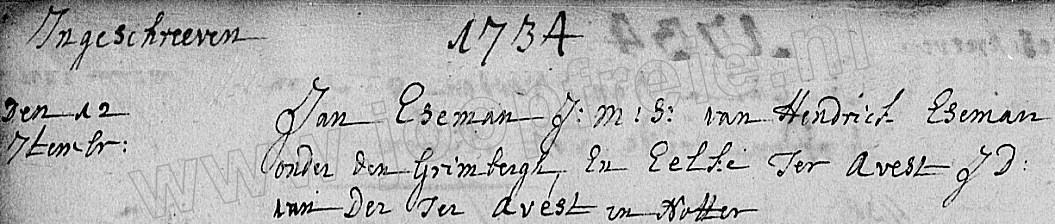 Ingeschreeven 1734
Den 12 7tembr: Jan Eseman J: M: S: van Hendrick Eseman
onder den Grimbergh, En Eelke Ter Avest J D:
van Der Ter Avest in Notter
www.joopfrele.nl